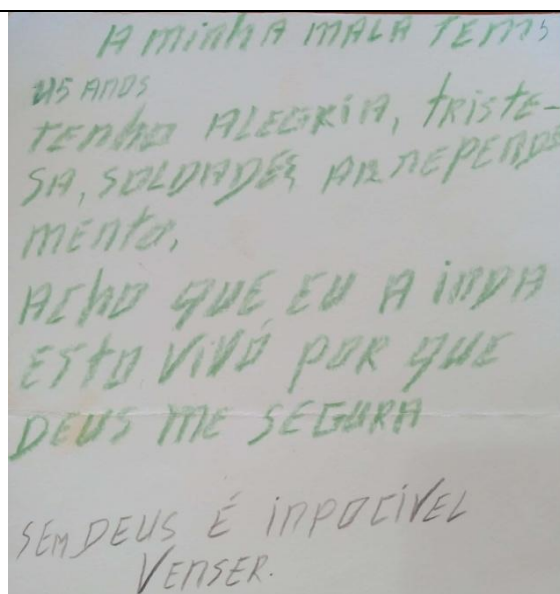 A MINHA MALA TEMS
45 ANOS
TENHO ALEGRIA, TRISTE-
SA, SOLDADES ARREPENDS
MENTO,
ACHO QUE EU A INDA
ESTO VIVO POR QUE
DEUS ME SEGURA
SEM DEUS É INPOCÍVEL
VENSER.